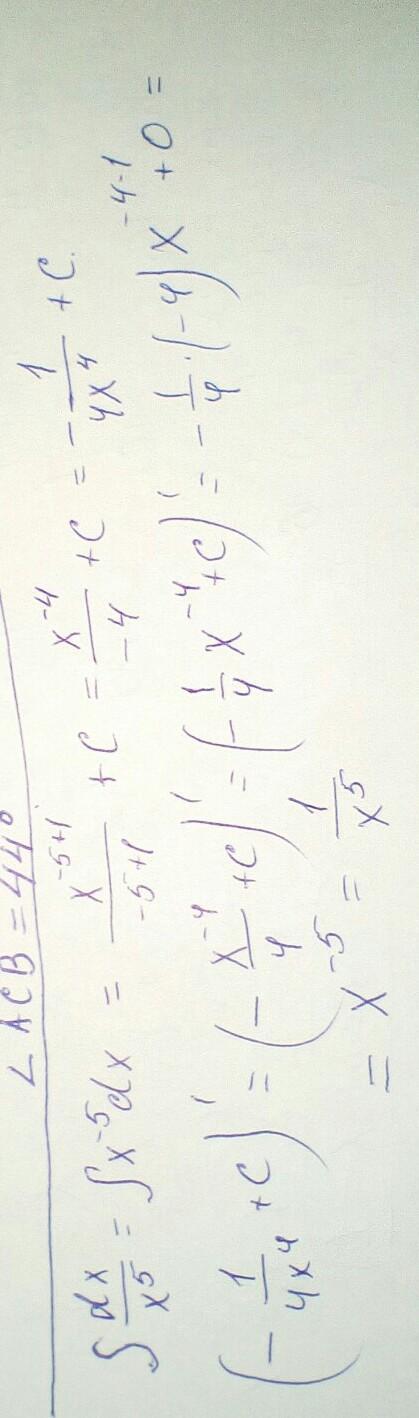 ∠ACB = 44°
∫ dx/x⁵ = ∫ x⁻⁵dx = x⁻⁵⁺¹/-5+1 + C = x⁻⁴/-4 + C = - 1/4x⁴ + C.
(- 1/4x⁴ + C)' = (- x⁻⁴/4 + C)' = (- 1/4 x⁻⁴ + C)' = - 1/4 · (-4) x⁻⁴⁻¹ + 0 =
= x⁻⁵ = 1/x⁵